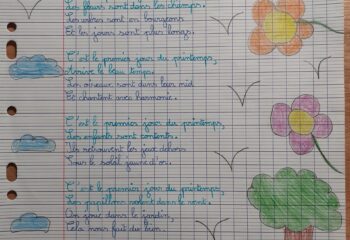 Les fleurs sont dans les champs.
Les arbres sont en bourgeons
Et les jours sont plus longs.
C'est le premier jour du printemps,
Arrive le beau temps.
Les oiseaux sont dans leur nid
Et chantent avec harmonie.
C'est le premier jour du printemps,
Les enfants sont contents.
Ils retrouvent les jeux dehors
Sous le soleil jaune d'or.
C'est le premier jour du printemps,
Les papillons volent dans le vent.
On joue dans le jardin,
Cela nous fait du bien.